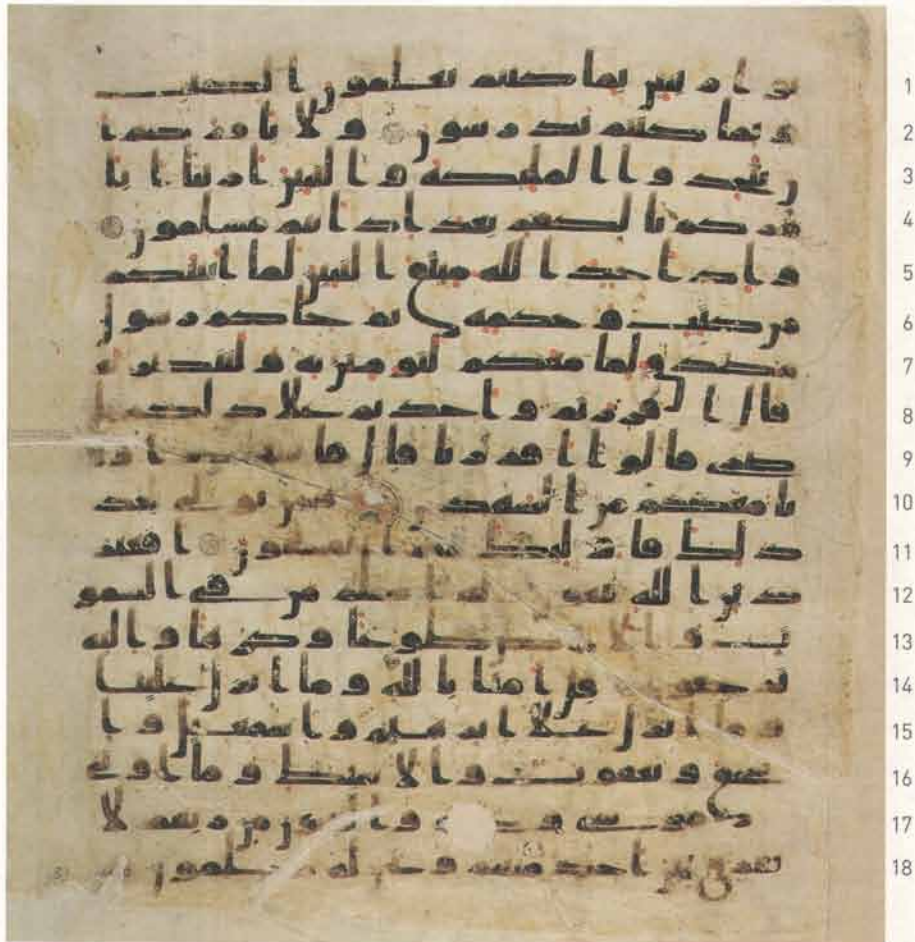 نوا ربنين بما كنتم تعلمون الكتب 1
وبما كنتم تدرسون ولا يامركم ا 2
ن تتخذوا الملئكة والنبين اربابا ايا 3
مركم بالكفر بعد اذ انتم مسلمون 4
واذ اخذ الله ميثق النبين لما اتيتكم 5
من كتب وحكمة ثم جاكم رسول 6
مصدق لما معكم لتومنن به ولتنصرنه 7
قال اقررتم واخذتم على ذلكم ا 8
صرى قالوا اقررنا قال فاشهدوا وا 9
نا معكم من الشهدين فمن تولى بعد 10
ذلك فاوليك هم الفسقون افغير 11
دين الله تبغون وله اسلم من في السمو 12
ت والارض طوعا وكرها واليه 13
ترجعون قل امنا بالله وما انزل علينا 14
وما انزل على ابرهيم واسمعيل وا 15
سحق ويعقوب والاسبط وما اوتي 16
موسى وعيسى والنبيون من ربهم لا 17
نفرق بين احد منهم ونحن له مسلمون 18